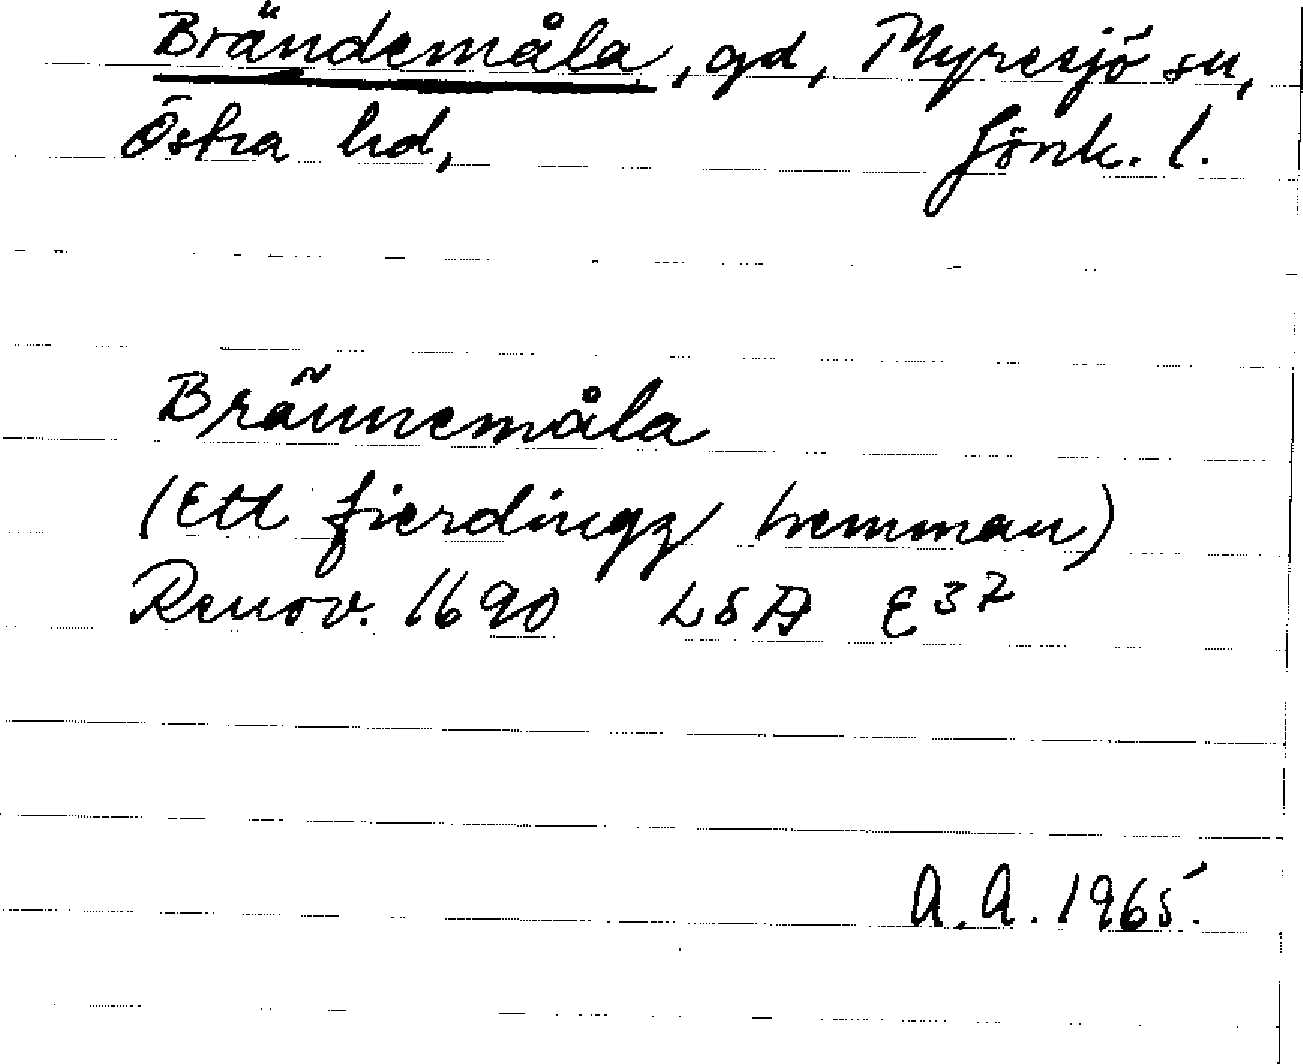 Brändemåla, gd, Myresjö sn,
Östra hd, Jönk. l.
Brännemåla
(Ett fierdingz hemman)
Renov. 1690 LSA E37
A.A. 1965.